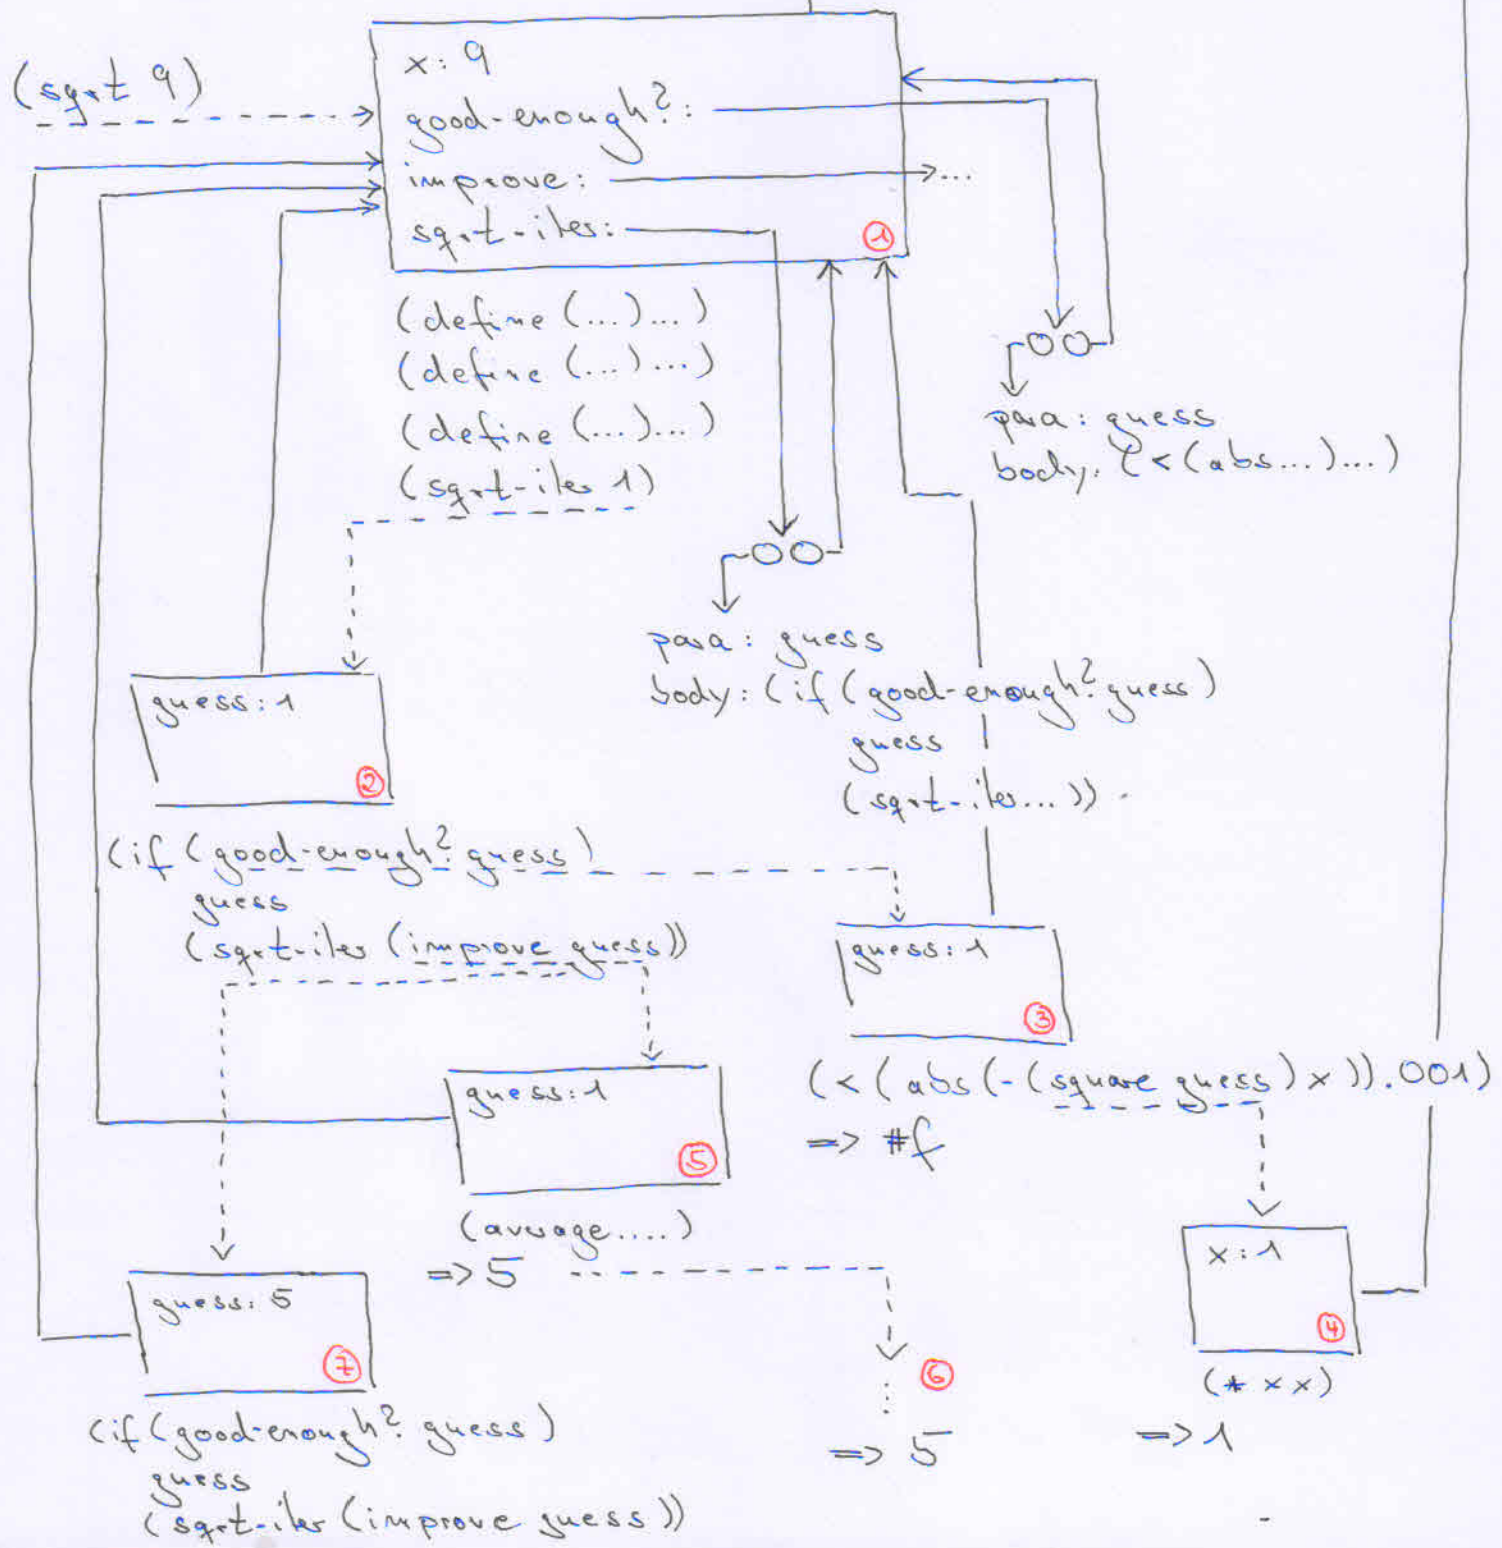 (sqrt 9)
x: 9
good-enough?:
improve: ...
sqrt-iter:
1
(define (...)...)
(define (...)...)
(define (...)...)
(sqrt-iter 1)
para: guess
body: (<(abs...)...)
para: guess
body: (if (good-enough? guess)
guess
(sqrt-iter...))
guess: 1
2
(if (good-enough? guess)
guess
(sqrt-iter (improve guess))
guess: 1
3
(< (abs (- (square guess) x)) .001)
=> #f
guess: 1
5
(average....)
=> 5
x: 1
4
(* x x)
=> 1
guess: 5
7
6
⋮
=> 5
(if (good-enough? guess)
guess
(sqrt-iter (improve guess))